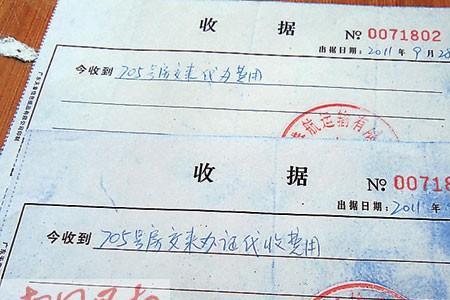 收 据
№ 0071802
出据日期：2011 年 9 月 28
今收到 705号房交来代办费用
航运输有限
收 据
№ 00718
出据日期：2011 年
今收到 705号房交来办证代收费用